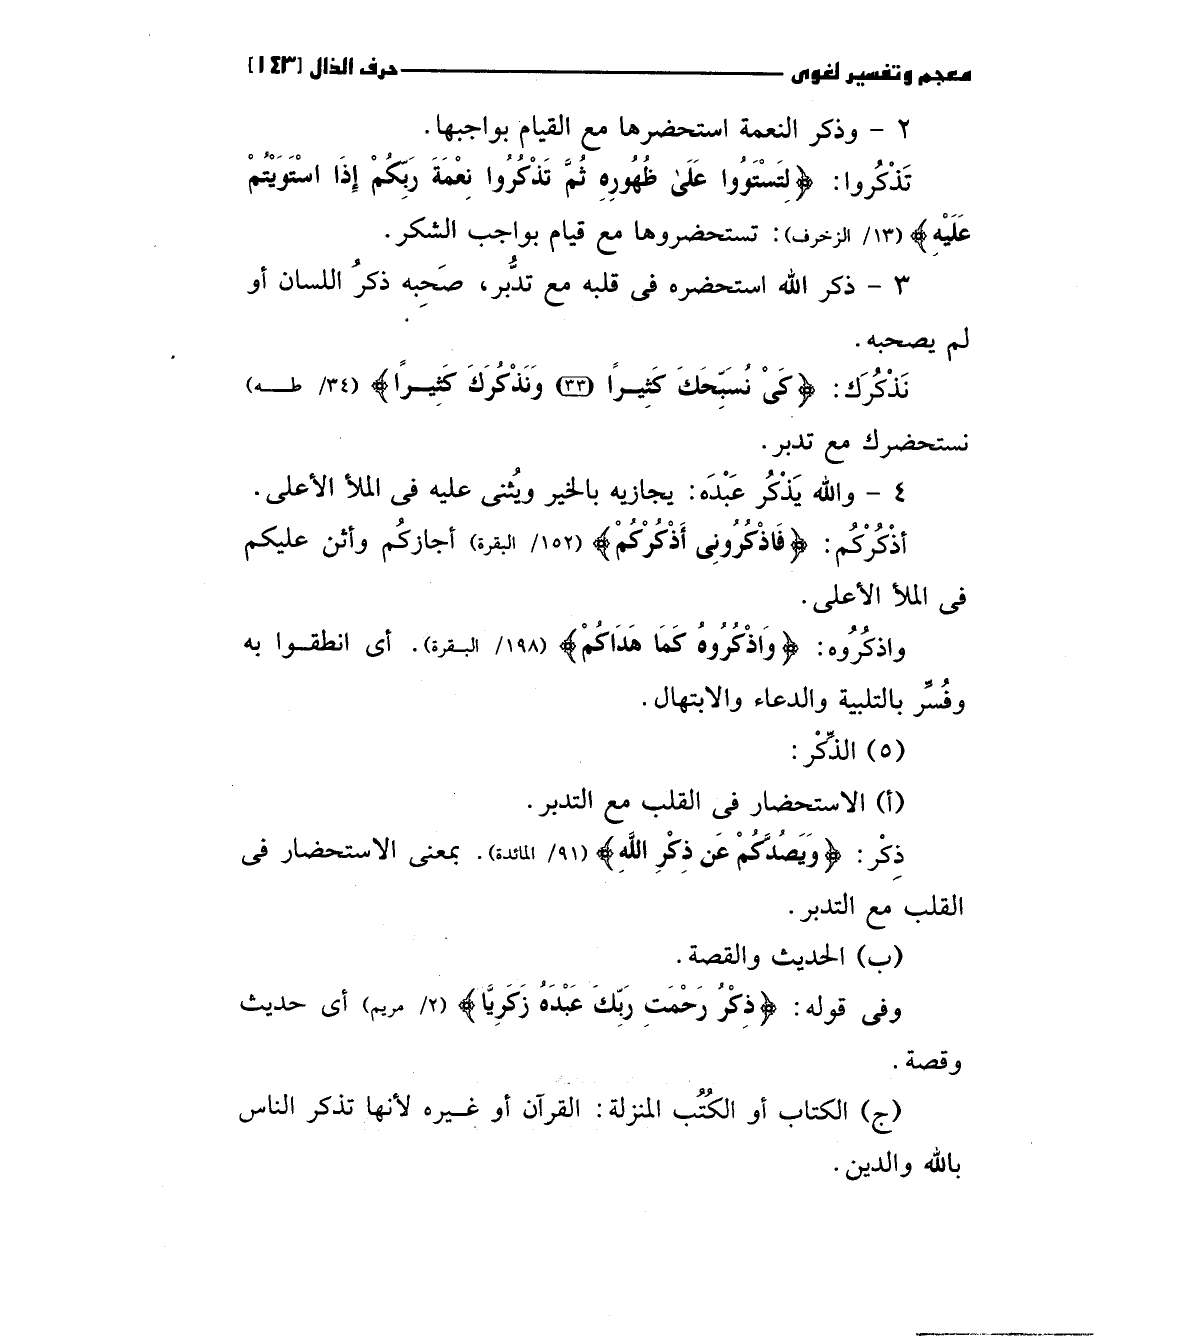 معجم وتفسير لغوى — حرف الذال [١٤٣]
٢ - وذكر النعمة استحضرها مع القيام بواجبها.
تَذْكُروا: ﴿لِتَسْتَوُوا عَلَىٰ ظُهُورِهِ ثُمَّ تَذْكُرُوا نِعْمَةَ رَبِّكُمْ إِذَا اسْتَوَيْتُمْ
عَلَيْهِ﴾ (١٣/ الزخرف): تستحضروها مع قيام بواجب الشكر.
٣ - ذكر الله استحضره فى قلبه مع تدبُّر، صَحِبه ذكرُ اللسان أو
لم يصحبه.
نَذْكُرَك: ﴿كَىْ نُسَبِّحَكَ كَثِيـرًا (٣٣) وَنَذْكُرَكَ كَثِيـرًا﴾ (٣٤/ طـــه)
نستحضرك مع تدبر.
٤ - والله يَذْكُر عَبْدَه: يجازيه بالخير ويُثنى عليه فى الملأ الأعلى.
أذْكُرْكُم: ﴿فَاذْكُرُونِى أَذْكُرْكُمْ﴾ (١٥٢/ البقرة) أجازكُم وأثن عليكم
فى الملأ الأعلى.
واذكُرُوه: ﴿وَاذْكُرُوهُ كَمَا هَدَاكُمْ﴾ (١٩٨/ البـقرة). أى انطقـوا به
وفُسِّر بالتلبية والدعاء والابتهال.
(٥) الذِّكْر:
(أ) الاستحضار فى القلب مع التدبر.
ذِكْر: ﴿وَيَصُدَّكُمْ عَن ذِكْرِ اللَّهِ﴾ (٩١/ المائدة). بمعنى الاستحضار فى
القلب مع التدبر.
(ب) الحديث والقصة.
وفى قوله: ﴿ذِكْرُ رَحْمَتِ رَبِّكَ عَبْدَهُ زَكَرِيَّا﴾ (٢/ مريم) أى حديث
وقصة.
(ج) الكتاب أو الكُتُب المنزلة: القرآن أو غـيره لأنها تذكر الناس
بالله والدين.